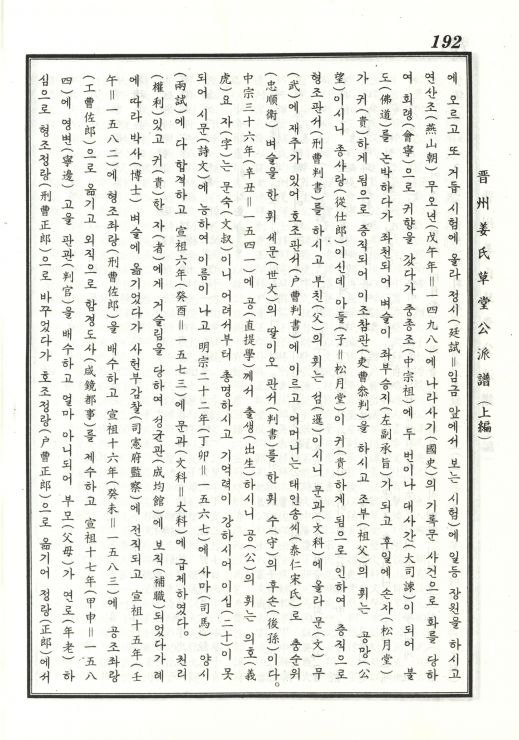 192
晋州姜氏草堂公派譜 (上編)
에 오르고 또 거듭 시험에 올라 정시(廷試=임금 앞에서 보는 시험)에 일등 장원을 하시고
연산조(燕山朝) 무오년(戊午年=一四九八)에 나라사기(國史)의 기록문 사건으로 화를 당하
여 회령(會寧)으로 귀향을 갔다가 중종조(中宗祖)에 두 번이나 대사간(大司諫)이 되어 불
도(佛道)를 논박하다가 좌천되어 벼슬이 좌부승지(左副承旨)가 되고 후일에 손자(松月堂)
가 귀(貴)하게 됨으로 증직되어 이조참판(吏曹叅判)을 하시고 조부(祖父)의 휘는 공망(公
望)이시니 종사랑(從仕郎)이신데 아들(子=松月堂)이 귀(貴)하게 됨으로 인하여 증직으로
형조판서(刑曹判書)를 하시고 부친(父)의 휘는 섬(暹)이시니 문과(文科)에 올라 문(文) 무
(武)에 재주가 있어 호조판서(戶曹判書)에 이르고 어머니는 태인송씨(泰仁宋氏)로 충순위
(忠順衛) 벼슬을 한 휘 세문(世文)의 딸이오 판서(判書)를 한 휘 수(守)의 후손(後孫)이다.
中宗三十六年(辛丑=一五四一)에 공(直提學)께서 출생(出生)하시니 공(公)의 휘는 의호(義
虎)요 자(字)는 문숙(文叔)이니 어려서부터 총명하시고 기억력이 강하시어 이십(二十)이 못
되어 시문(詩文)에 능하여 이름이 나고 明宗二十二年(丁卯=一五六七)에 사마(司馬) 양시
(兩試)에 다 합격하고 宣祖六年(癸酉=一五七三)에 문과(文科=大科)에 급제하였다. 권리
(權利)있고 귀(貴)한 자(者)에게 거슬림을 당하여 성균관(成均館)에 보직(補職)되었다가 례
에 따라 박사(博士) 벼슬에 옮기었다가 사헌부감찰(司憲府監察)에 전직되고 宣祖十五年(壬
午=一五八二)에 형조좌랑(刑曹佐郎)을 배수하고 宣祖十六年(癸未=一五八三)에 공조좌랑
(工曹佐郎)으로 옮기고 외직으로 함경도사(咸鏡都事)를 제수하고 宣祖十七年(甲申=一五八
四)에 영변(寧邊) 고을 판관(判官)을 배수하고 얼마 아니되어 부모(父母)가 연로(年老)하
심으로 형조정랑(刑曹正郎)으로 바꾸었다가 호조정랑(戶曹正郎)으로 옮기어 정랑(正郎)에서